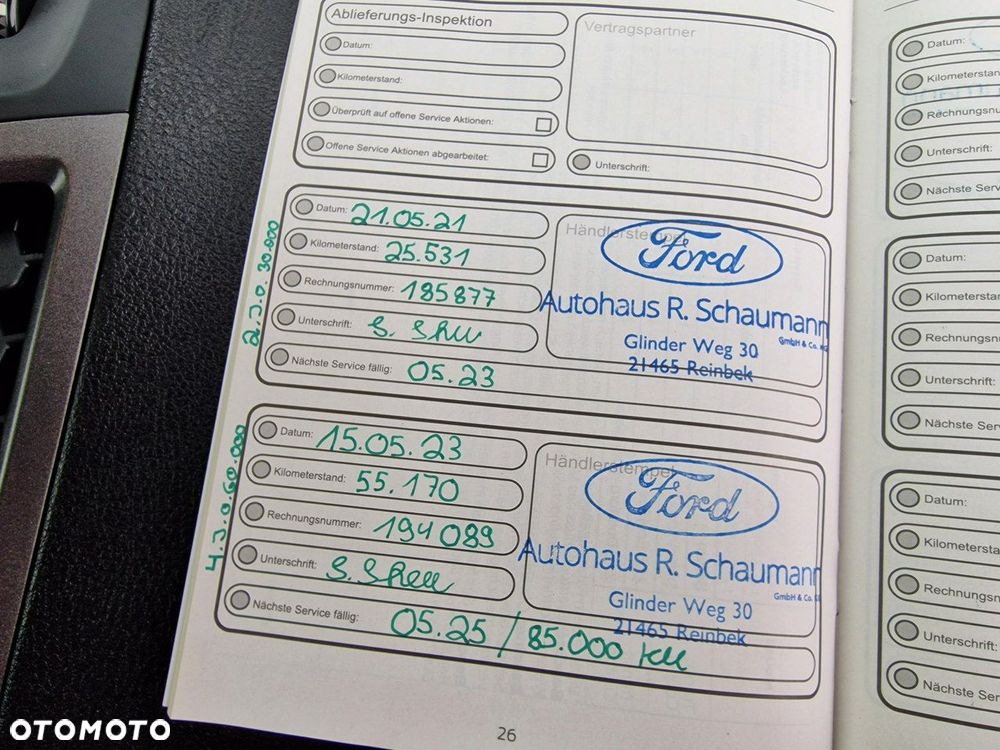 Ablieferungs-Inspektion
Datum:
Kilometerstand:
Überprüft auf offene Service Aktionen:
Offene Service Aktionen abgearbeitet:
Vertragspartner
Unterschrift:
2.J.o.30.000
Datum: 21.05.21
Kilometerstand: 25.531
Rechnungsnummer: 185877
Unterschrift:
Nächste Service fällig: 05.23
Händlerstempel
Ford
Autohaus R. Schaumann
GmbH & Co. KG
Glinder Weg 30
21465 Reinbek
4.J.o.60.000
Datum: 15.05.23
Kilometerstand: 55.170
Rechnungsnummer: 194089
Unterschrift:
Nächste Service fällig: 05.25 / 85.000 KM
Händlerstempel
Ford
Autohaus R. Schaumann
GmbH & Co.
Glinder Weg 30
21465 Reinbek
26
Datum:
Kilometersta
Rechnungsnu
Unterschrift:
Nächste Serv
Datum:
Kilometersta
Rechnungsn
Unterschrift:
Nächste Ser
Datum:
Kilometersta
Rechnungsn
Unterschrift:
Nächste Ser
OTOMOTO